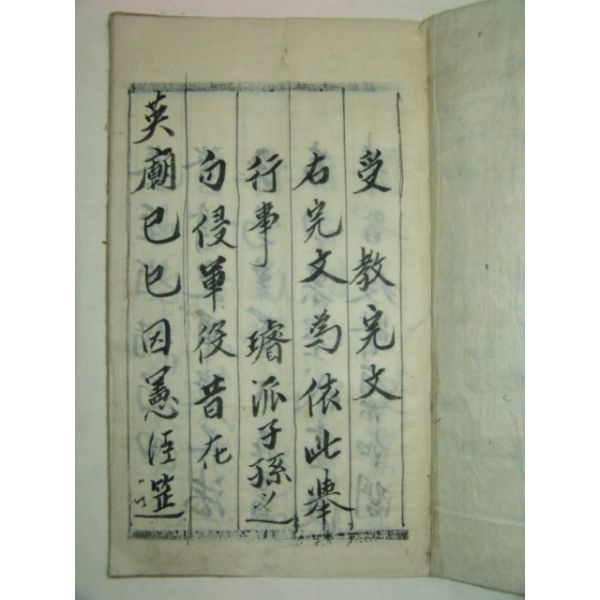 受 教完文
右完文為依此舉
行事 璿派子孫之
勿侵軍役昔在
英廟己巳因憲臣䇿